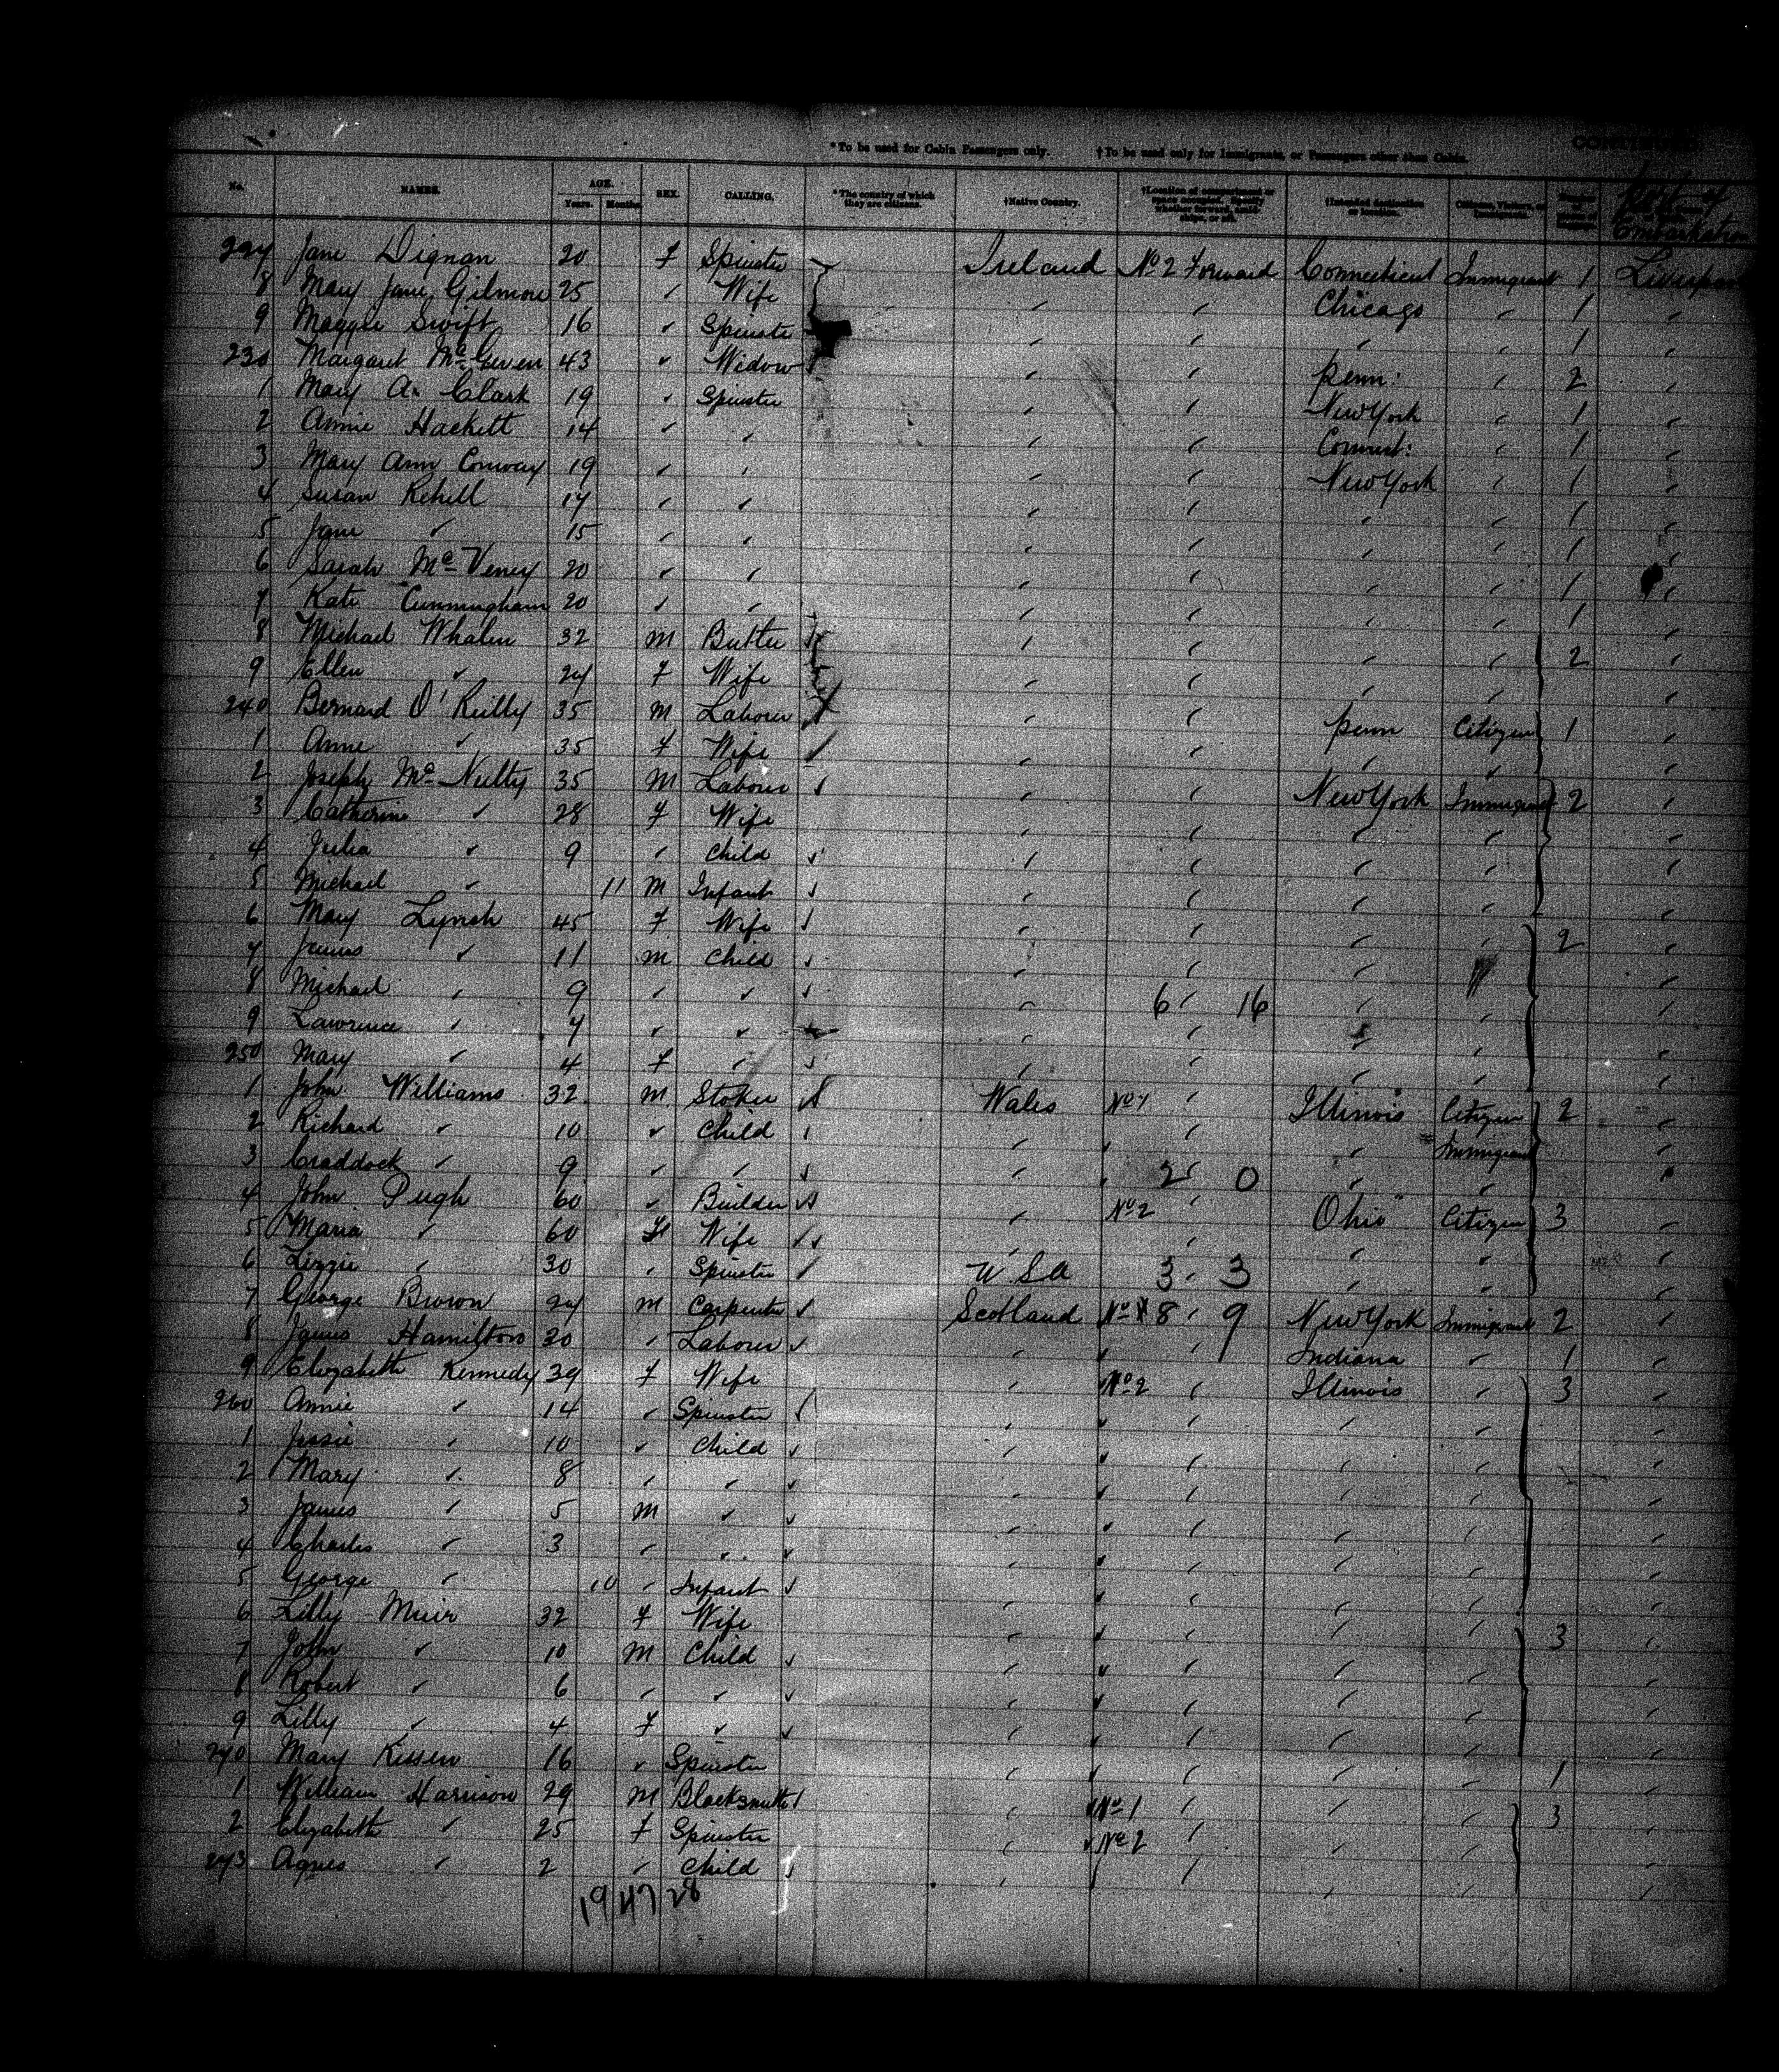 *To be used for Cabin Passengers only. †To be used only for Immigrants, or Passengers other than Cabin.
No. NAMES. AGE. Years. Months. SEX. CALLING. *The country of which they are citizens. †Native Country. †Location of compartment or space occupied. †Intended destination or location. Number of Pieces of Baggage. Port of Embarkation
227 Jane Dignan 20 F Spinster Ireland No 2 Forward Connecticut Immigrant 1 Liverpool
8 Mary Jane Gilmore 25 " Wife " " Chicago " 1 "
9 Maggie Swift 16 " Spinster " " " " 1 "
230 Margaret Mc Given 43 " Widow " " Penn: " 2 "
1 Mary A. Clark 19 " Spinster " " New York " 1 "
2 Annie Hackett 14 " " " " Connect: " 1 "
3 Mary Ann Conway 19 " " " " New York " 1 "
4 Susan Rehill 17 " " " " " " 1 "
5 Jane " 15 " " " " " " 1 "
6 Sarah Mc Veney 20 " " " " " " 1 "
7 Kate Cunningham 20 " " " " " " 1 "
8 Michael Whalen 32 M Butler " " " " 2 "
9 Ellen " 24 F Wife " " " " "
240 Bernard O'Reilly 35 M Laborer " " Penn Citizen 1 "
1 Anne " 35 F Wife " " " " "
2 Joseph Mc Nulty 35 M Laborer " " New York Immigrant 2 "
3 Catherine " 28 F Wife " " " " "
4 Julia " 9 " Child " " " " "
5 Michael " 11 M Infant " " " " "
6 Mary Lynch 45 F Wife " " " " 2 "
7 James " 11 M Child " " " " "
8 Michael " 9 " " " 6 " 16 " " "
9 Lawrence " 7 " " " " " " "
250 Mary " 4 F " " " " " "
1 John Williams 32 M Stoker Wales No 1 " Illinois Citizen 2 "
2 Richard " 10 " Child " " " Immigrant "
3 Craddock " 9 " " " 2 " 0 " " "
4 John Pugh 60 " Builder " No 2 " Ohio Citizen 3 "
5 Maria " 60 F Wife " " " " "
6 Lizzie " 30 " Spinster U.S.A 3 " 3 " " "
7 George Brown 24 M Carpenter Scotland No 1 8 " 9 New York Immigrant 2 "
8 James Hamilton 30 " Laborer " " " Indiana " 1 "
9 Elizabeth Kennedy 39 F Wife " No 2 " Illinois " 3 "
260 Annie " 14 " Spinster " " " " " "
1 Jessie " 10 " Child " " " " " "
2 Mary " 8 " " " " " " " "
3 James " 5 M " " " " " " "
4 Charles " 3 " " " " " " " "
5 George " 10 " Infant " " " " " "
6 Lilly Muir 32 F Wife " " " " " 3 "
7 John " 10 M Child " " " " " "
8 Robert " 6 " " " " " " " "
9 Lilly " 4 F " " " " " " "
270 Mary Kissen 16 " Spinster " " " " " 1 "
1 William Harrison 29 M Blacksmith " No 1 " " " 3 "
2 Elizabeth " 25 F Spinster " No 2 " " " "
273 Agnes " 2 " Child " " " " " "
19 47 28